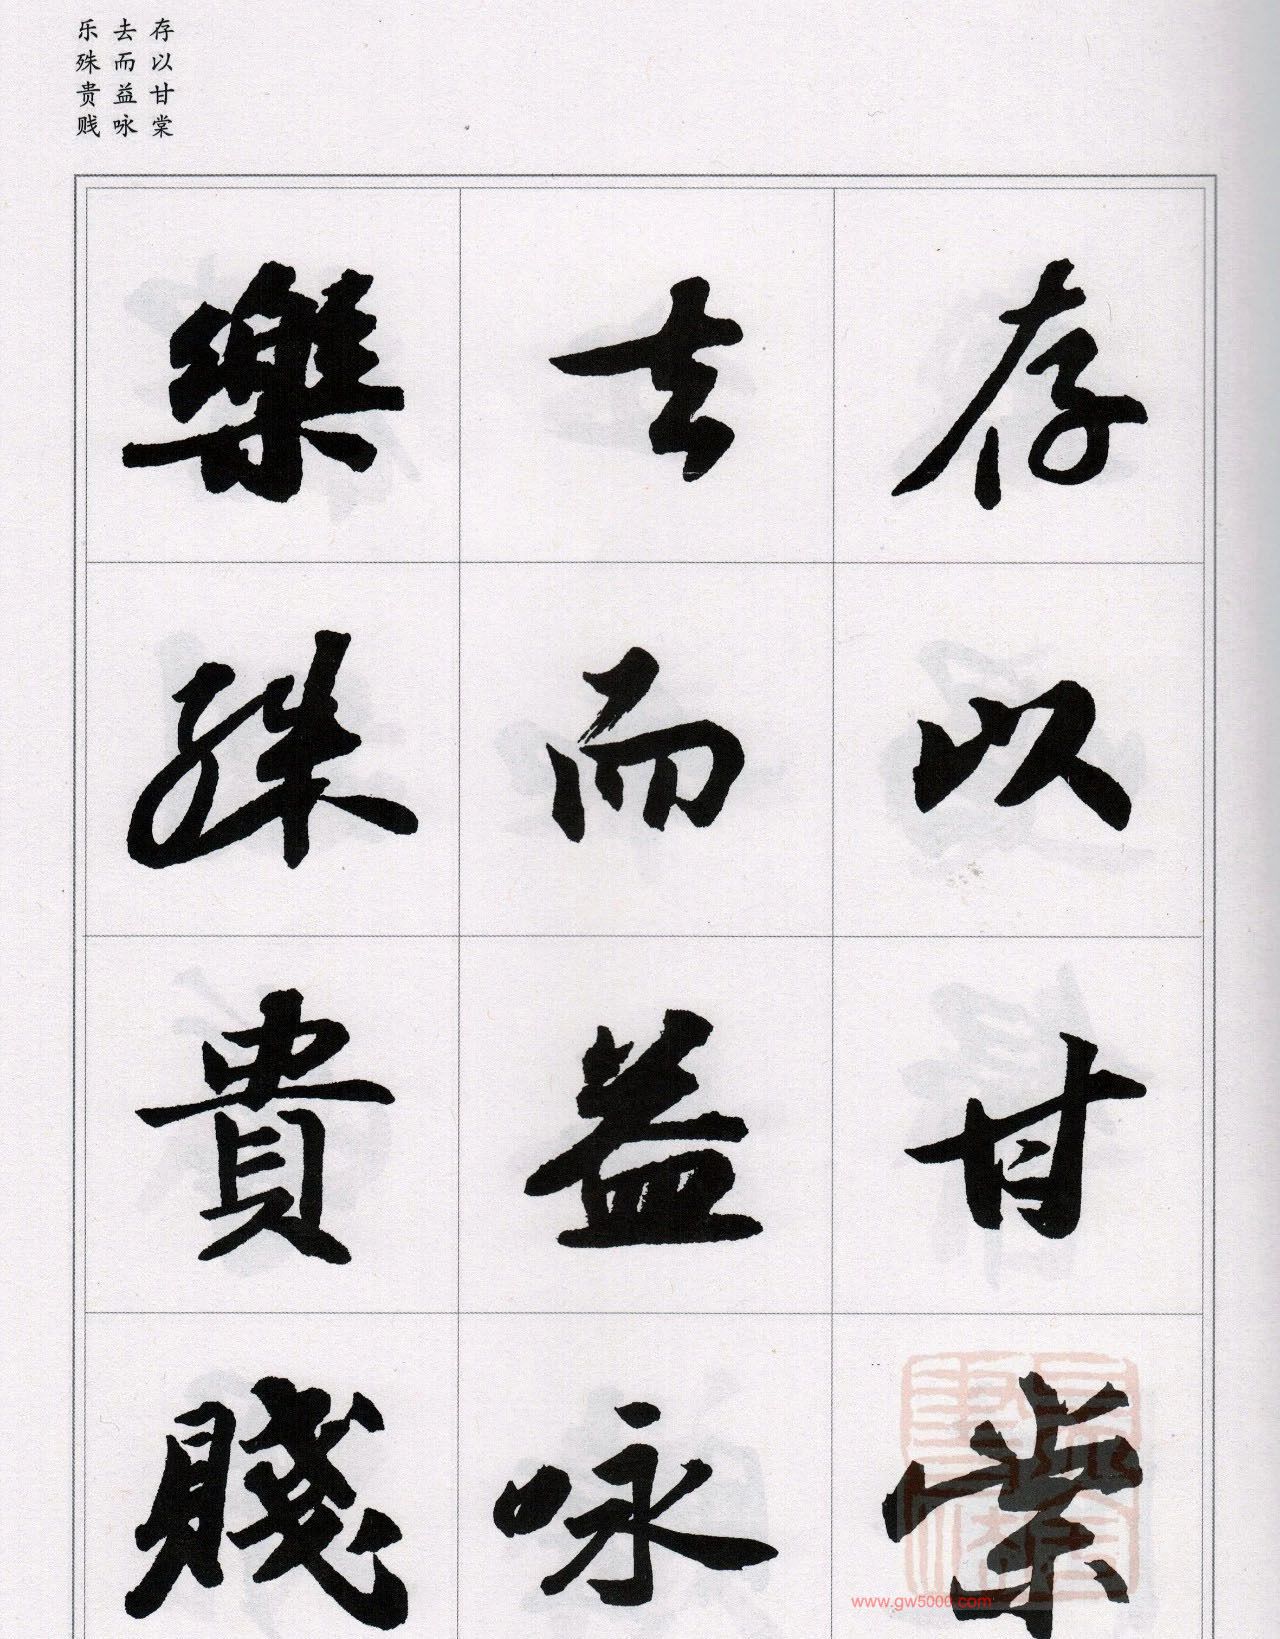 存以甘棠
去而益咏
乐殊贵贱
存以甘棠
去而益咏
樂殊貴賤
www.gw5000.com